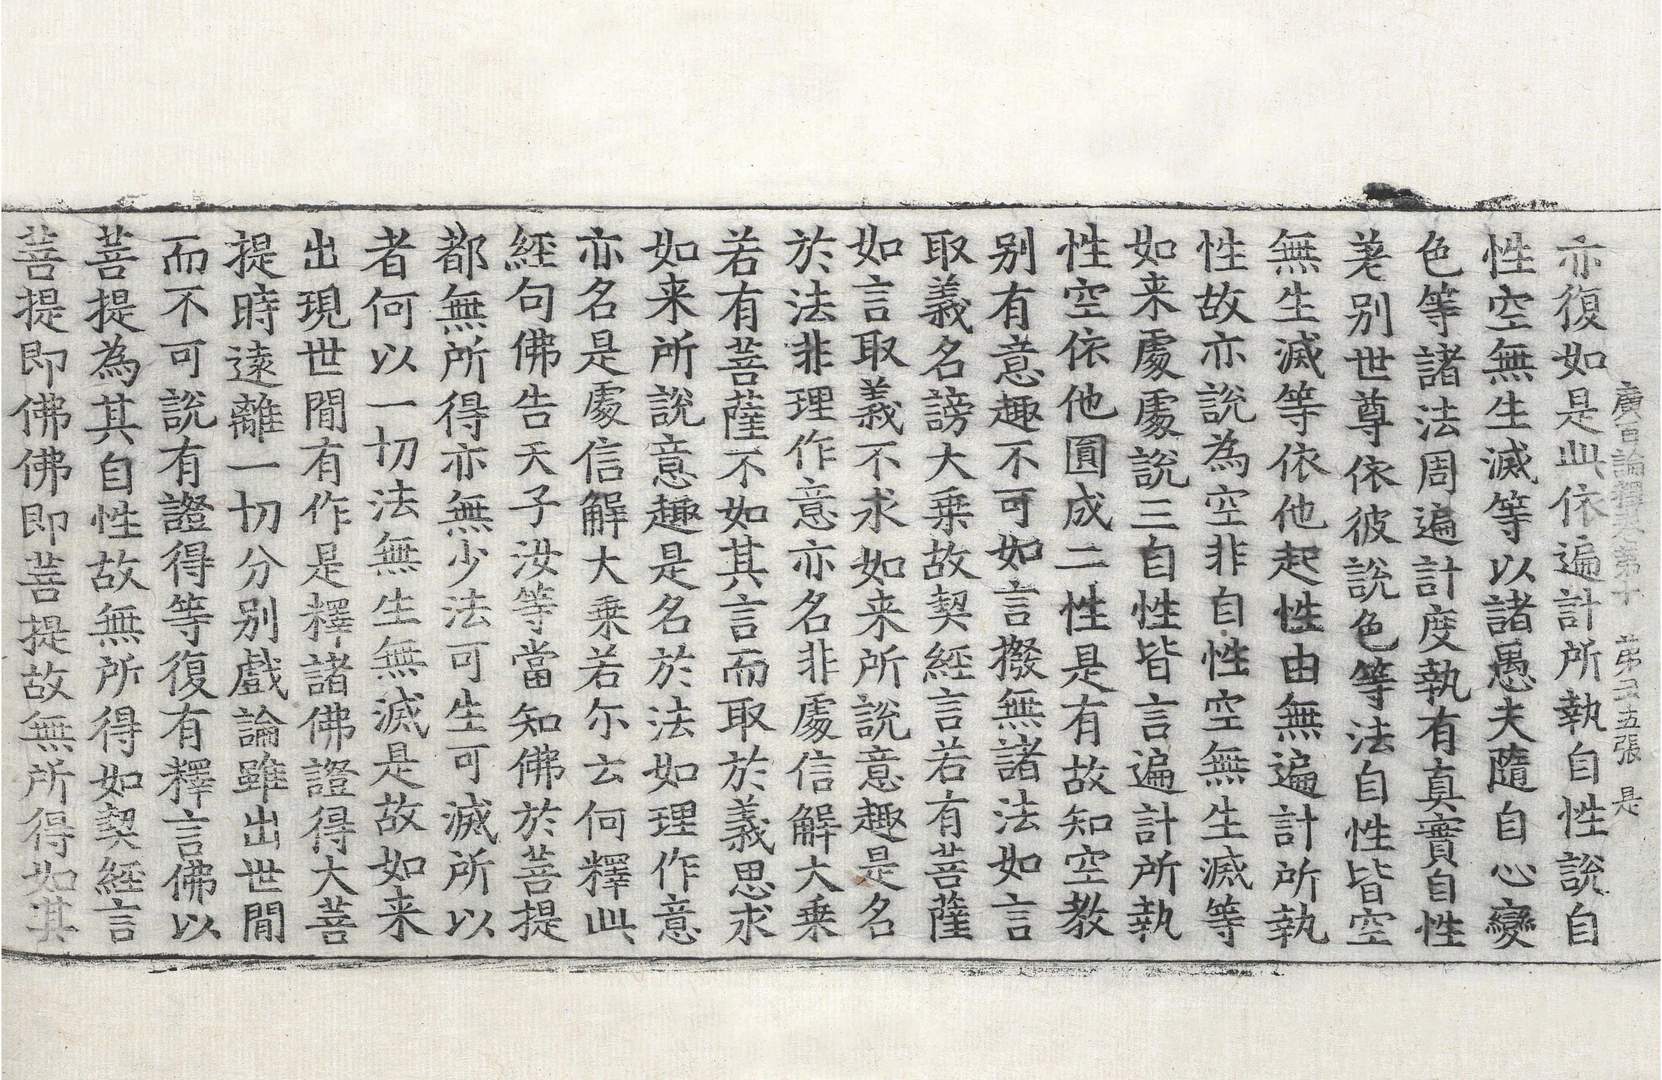 廣百論釋卷第十 第二十五張 是
亦復如是此依遍計所執自性說自
性空無生滅等以諸愚夫隨自心變
色等諸法周遍計度執有真實自性
差別世尊依彼說色等法自性皆空
無生滅等依他起性由無遍計所執
性故亦說為空非自性空無生滅等
如来處處說三自性皆言遍計所執
性空依他圓成二性是有故知空教
别有意趣不可如言撥無諸法如言
取義名謗大乗故契經言若有菩薩
如言取義不求如来所說意趣是名
於法非理作意亦名非處信解大乗
若有菩薩不如其言而取於義思求
如来所說意趣是名於法如理作意
亦名是處信解大乗若尒云何釋此
經句佛告天子汝等當知佛於菩提
都無所得亦無少法可生可滅所以
者何以一切法無生無滅是故如来
出現世間有作是釋諸佛證得大菩
提時遠離一切分别戲論雖出世間
而不可說有證得等復有釋言佛以
菩提為其自性故無所得如契經言
菩提即佛佛即菩提故無所得如其